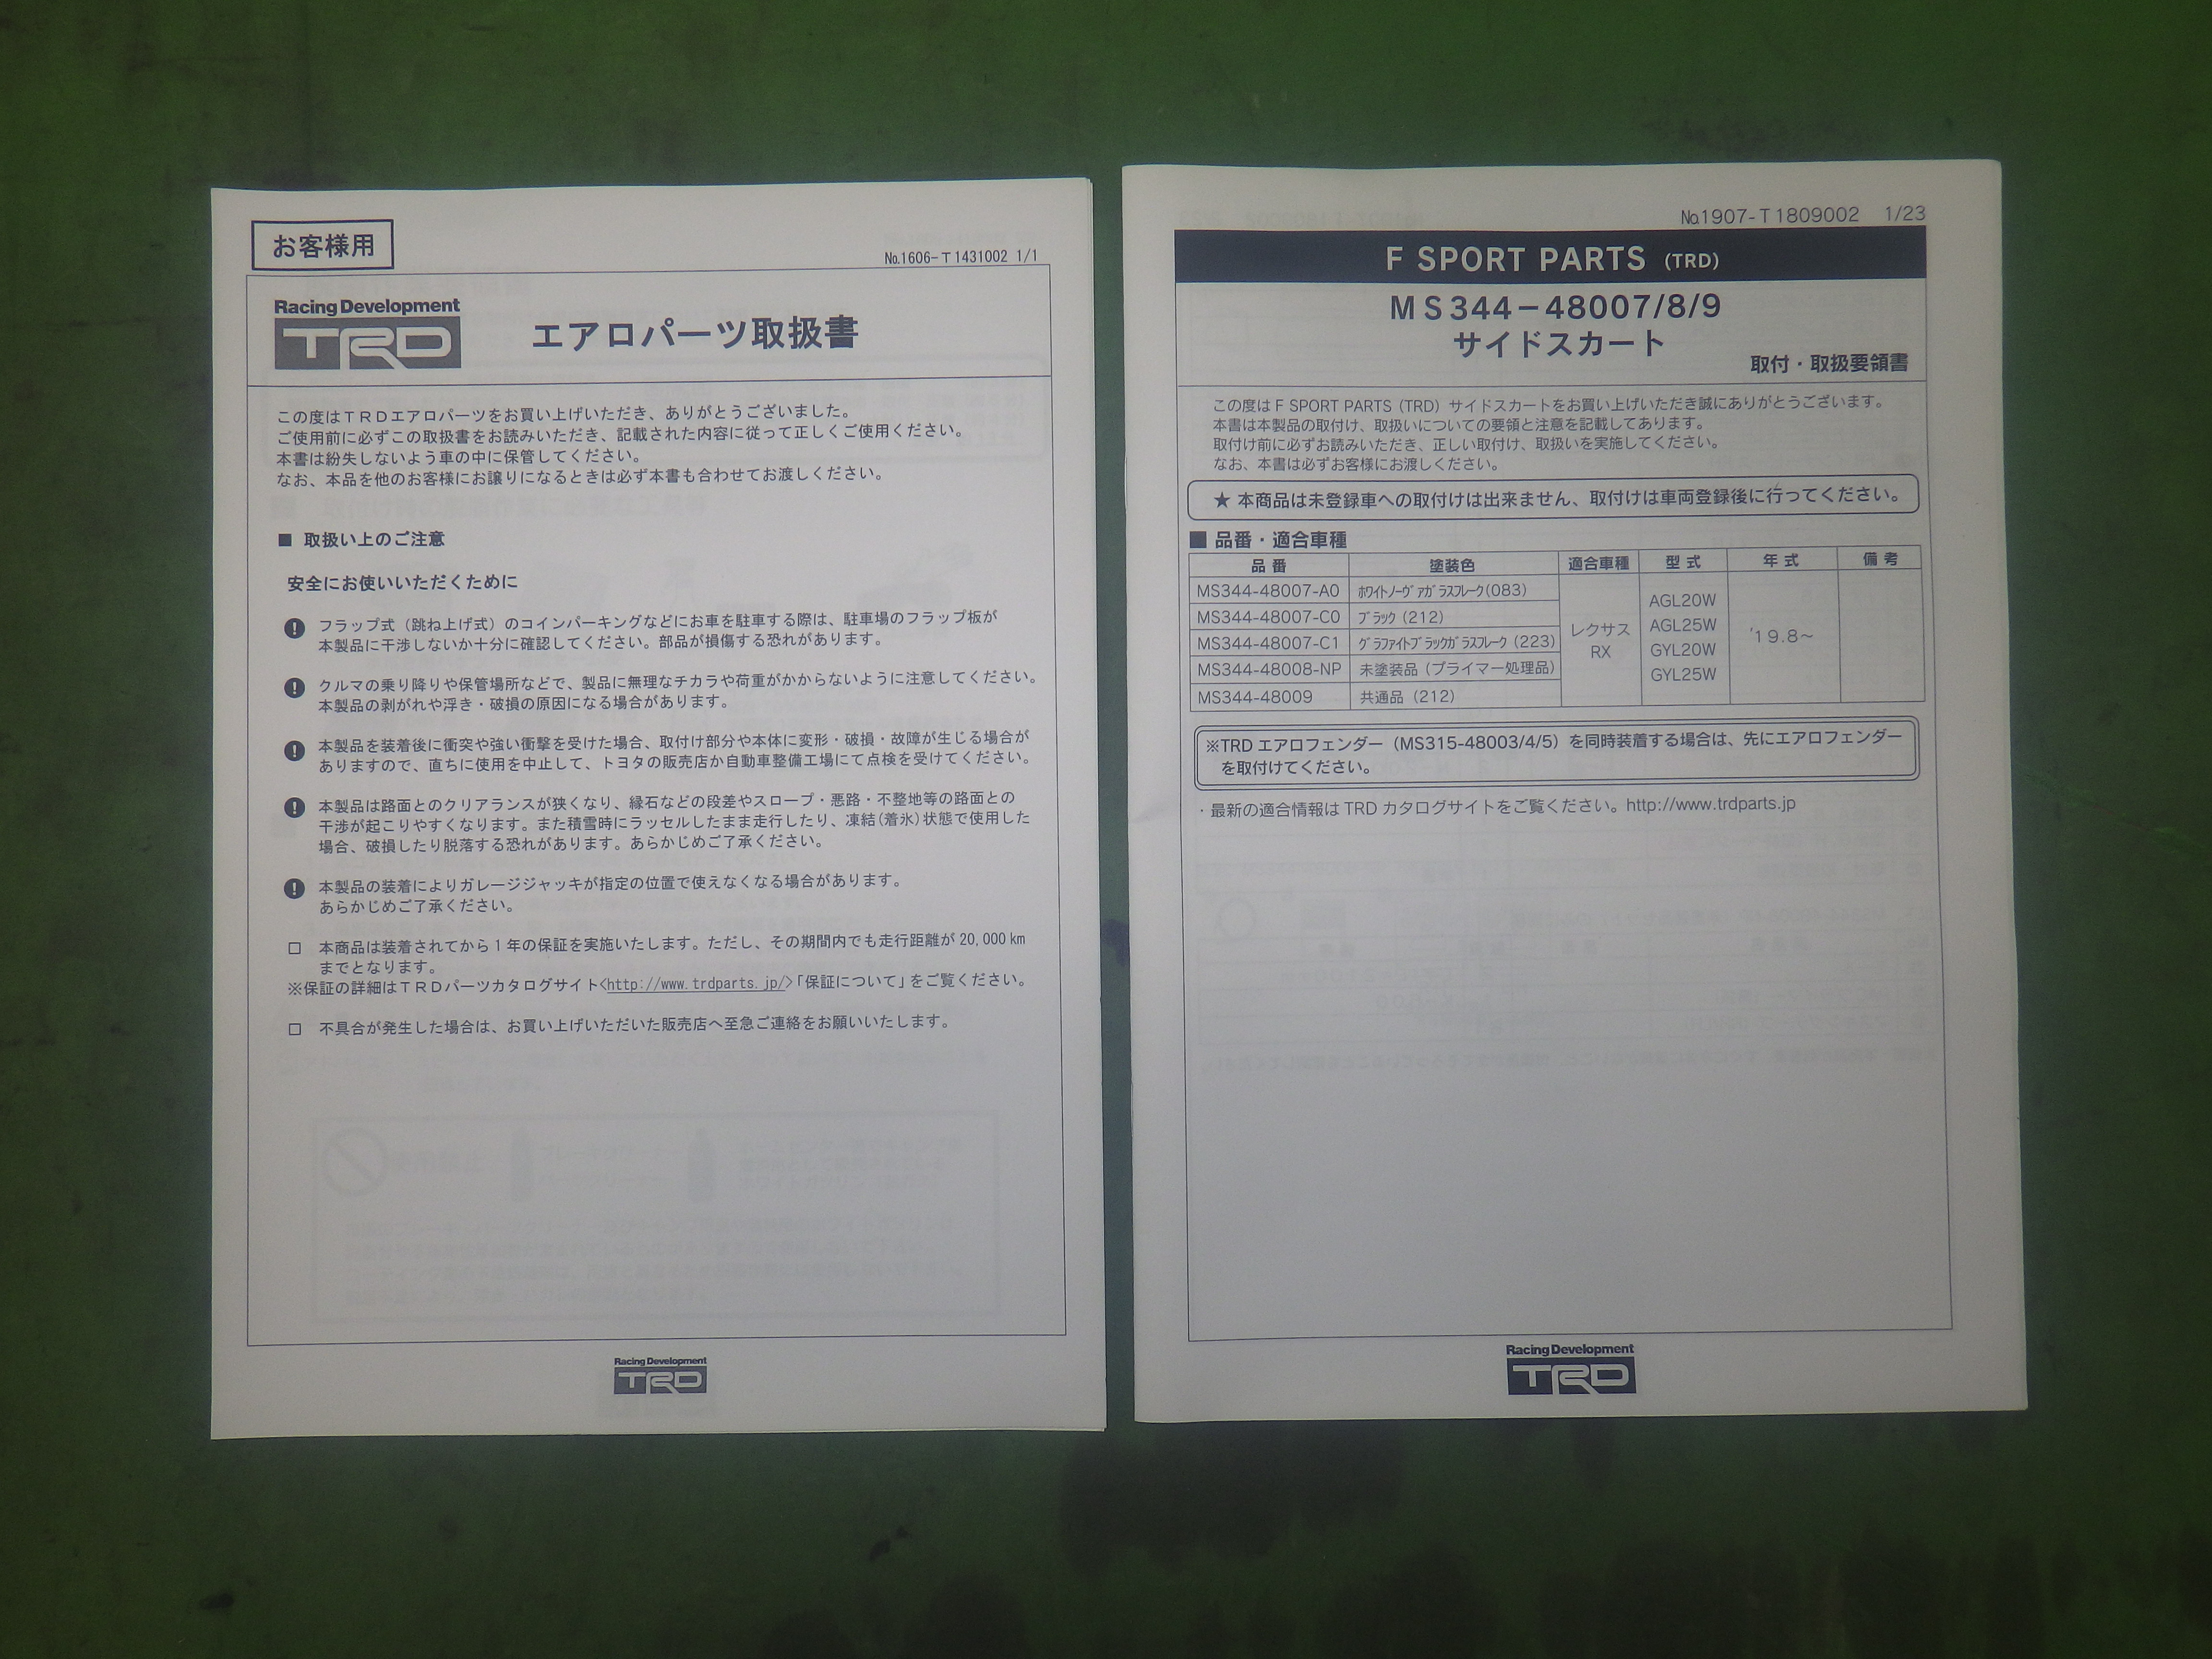 お客様用
№1606-T1431002 1/1
Racing Development
TRD
エアロパーツ取扱書
この度はTRDエアロパーツをお買い上げいただき、ありがとうございました。
ご使用前に必ずこの取扱書をお読みいただき、記載された内容に従って正しくご使用ください。
本書は紛失しないよう車の中に保管してください。
なお、本品を他のお客様にお譲りになるときは必ず本書も合わせてお渡しください。
■ 取扱い上のご注意
安全にお使いいただくために
フラップ式（跳ね上げ式）のコインパーキングなどにお車を駐車する際は、駐車場のフラップ板が
本製品に干渉しないか十分に確認してください。部品が損傷する恐れがあります。
クルマの乗り降りや保管場所などで、製品に無理なチカラや荷重がかからないように注意してください。
本製品の剥がれや浮き・破損の原因になる場合があります。
本製品を装着後に衝突や強い衝撃を受けた場合、取付け部分や本体に変形・破損・故障が生じる場合が
ありますので、直ちに使用を中止して、トヨタの販売店か自動車整備工場にて点検を受けてください。
本製品は路面とのクリアランスが狭くなり、縁石などの段差やスロープ・悪路・不整地等の路面との
干渉が起こりやすくなります。また積雪時にラッセルしたまま走行したり、凍結(着氷)状態で使用した
場合、破損したり脱落する恐れがあります。あらかじめご了承ください。
本製品の装着によりガレージジャッキが指定の位置で使えなくなる場合があります。
あらかじめご了承ください。
□ 本商品は装着されてから1年の保証を実施いたします。ただし、その期間内でも走行距離が20,000km
までとなります。
※保証の詳細はTRDパーツカタログサイト<http://www.trdparts.jp/>「保証について」をご覧ください。
□ 不具合が発生した場合は、お買い上げいただいた販売店へ至急ご連絡をお願いいたします。
Racing Development
TRD
№1907-T1809002 1/23
F SPORT PARTS (TRD)
MS344-48007/8/9
サイドスカート
取付・取扱要領書
この度は F SPORT PARTS（TRD）サイドスカートをお買い上げいただき誠にありがとうございます。
本書は本製品の取付け、取扱いについての要領と注意を記載してあります。
取付け前に必ずお読みいただき、正しい取付け、取扱いを実施してください。
なお、本書は必ずお客様にお渡しください。
★ 本商品は未登録車への取付けは出来ません、取付けは車両登録後に行ってください。
■ 品番・適合車種
品 番 塗装色 適合車種 型 式 年 式 備 考
MS344-48007-A0 ﾎﾜｲﾄﾉｰｳﾞｧｶﾞﾗｽﾌﾚｰｸ(083)
MS344-48007-C0 ﾌﾞﾗｯｸ（212）
MS344-48007-C1 ｸﾞﾗﾌｧｲﾄﾌﾞﾗｯｸｶﾞﾗｽﾌﾚｰｸ（223）
MS344-48008-NP 未塗装品（プライマー処理品）
MS344-48009 共通品（212）
レクサス
RX
AGL20W
AGL25W
GYL20W
GYL25W
'19.8～
※TRD エアロフェンダー（MS315-48003/4/5）を同時装着する場合は、先にエアロフェンダー
を取付けてください。
・最新の適合情報は TRD カタログサイトをご覧ください。http://www.trdparts.jp
Racing Development
TRD